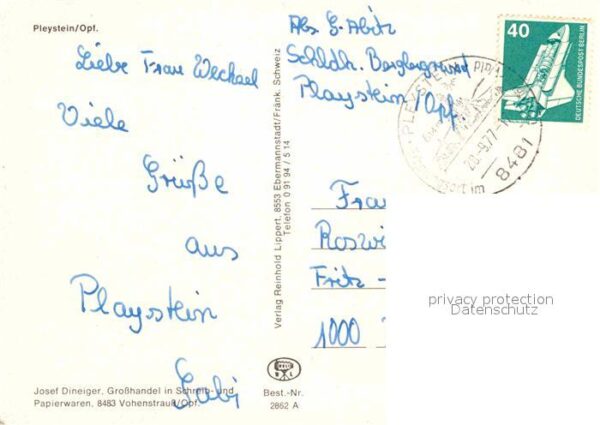 Pleystein/Opf.
Liebe Frau Wechsel
Viele
Grüße
aus
Playstein
Gabi
Josef Dineiger, Großhandel in Schreib- und
Papierwaren, 8483 Vohenstrauß/Opf.
Verlag Reinhold Lippert, 8553 Ebermannstadt/Fränk. Schweiz
Telefon 0 91 94 / 5 14
Best.-Nr.
2862 A
Abs G. Abitz
Schldh. Bergbergrund
Playstein /Opf.
40
DEUTSCHE BUNDESPOST BERLIN
PLEYSTEIN
20.-9.77
8481
Frau
Roswi
Fritz -
1000
privacy protection
Datenschutz